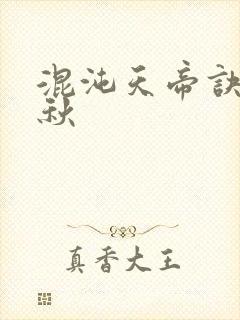 混沌天帝诀
秋
真香大王